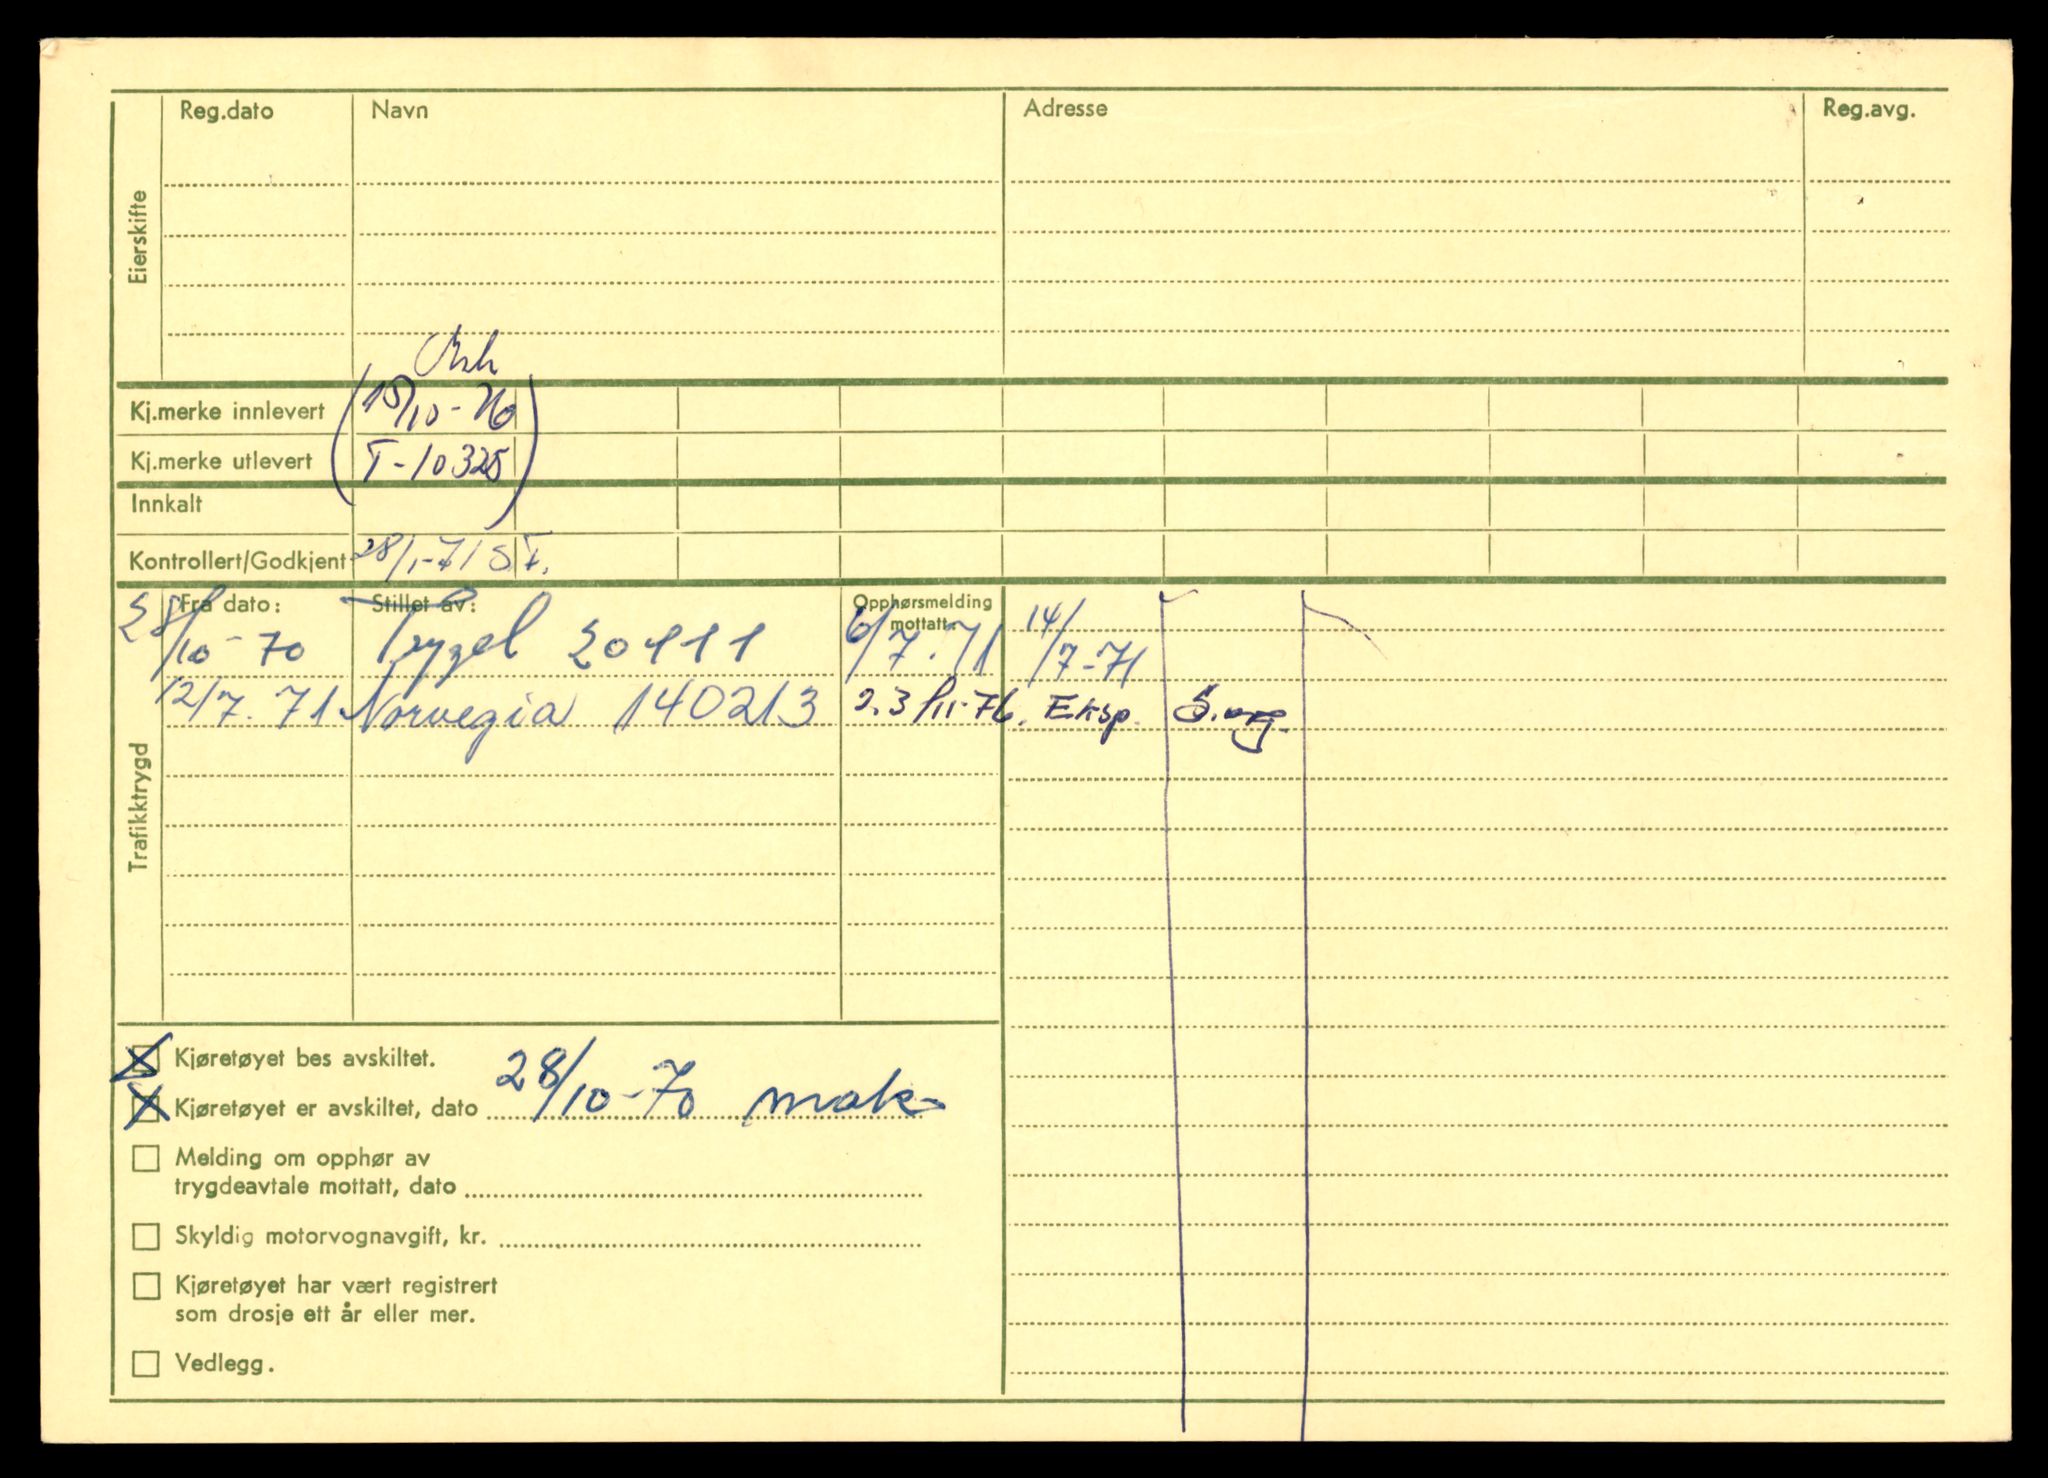 Reg.dato Navn Adresse Reg.avg.
Eierskifte
Kj.merke innlevert 15/10-76
Kj.merke utlevert T-10325
Innkalt
Kontrollert/Godkjent 28/1-71 S.T.
Trafikktrygd
Fra dato: Stillet av: Opphørsmelding mottatt:
28/10-70 Trygd 20111 6/7.71 14/7-71
12/7.71 Norvegia 140213 23/11-76. Eksp.
Kjøretøyet bes avskiltet.
Kjøretøyet er avskiltet, dato 28/10-70 mak
Melding om opphør av
trygdeavtale mottatt, dato
Skyldig motorvognavgift, kr.
Kjøretøyet har vært registrert
som drosje ett år eller mer.
Vedlegg.